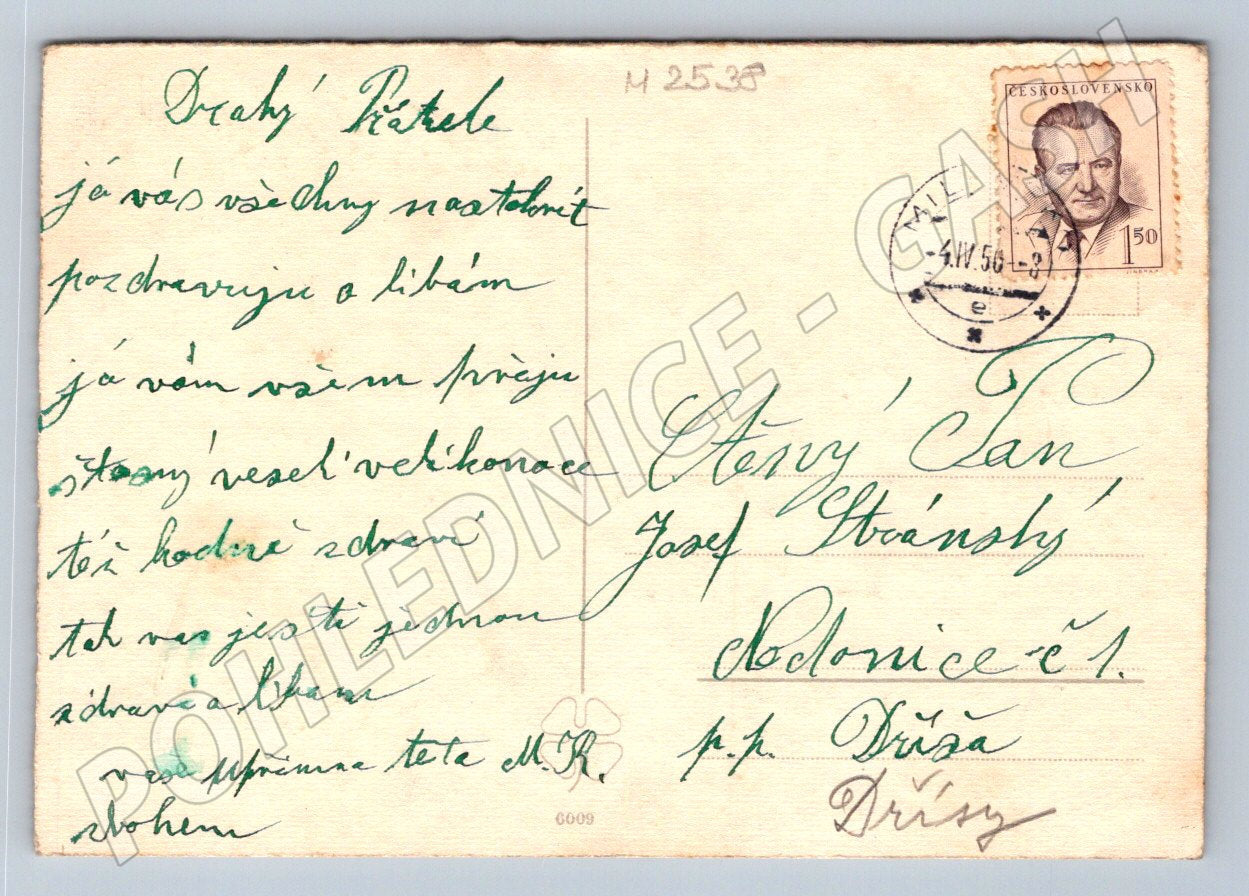 M 2538
Drahý Přátele
já vás všechny nastokrát
pozdravuju a libám
já vám všem přeju
štasný veselí velikonoce
též hodně zdraví
tak vas ješti jednou
zdravá a libam
vaše upřimna teta M.K.
sbohem
ČESKOSLOVENSKO
1 50
-4.IV.50--8
e
Ctěný Pan
Josef Stránský
Nodonice č 1.
p.p. Dříša
Dřísy
6009
POHLEDNICE - GASH